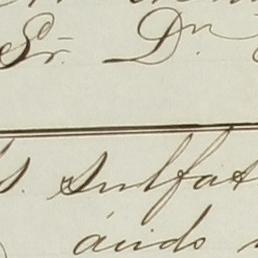 Sr. Dn
s. sulfat
ácido